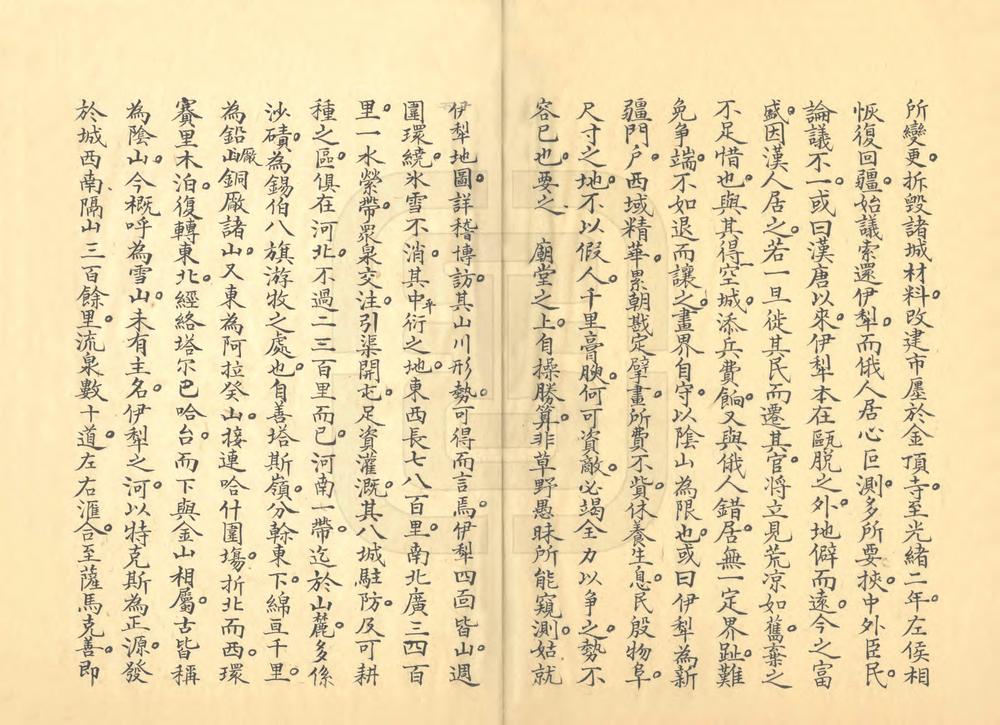 所變更。拆毀諸城材料。改建市廛於金頂寺。至光緒二年。左侯相
恢復回疆。始議索還伊犁。而俄人居心叵測。多所要挾。中外臣民。
論議不一。或曰漢唐以來。伊犁本在甌脫之外。地僻而遠。今之富
盛。因漢人居之。若一旦徙其民而遷其官。將立見荒凉如舊。棄之
不足惜也。與其得一空城。添兵費餉。又與俄人錯居。無一定界趾。難
免爭端。不如退而讓之。畫界自守。以陰山為限也。或曰伊犁為新
疆門戶。西域精華。累朝戡定擘畫。所費不貲。休養生息。民殷物阜。
尺寸之地。不以假人。千里膏腴。何可資敵。必竭全力以爭之。勢不
容已也。要之　廟堂之上。自操勝算。非草野愚昧所能窺測。姑就
伊犁地圖。詳稽博訪。其山川形勢。可得而言焉。伊犁四面皆山。週
圍環繞。氷雪不消。其中平衍之地。東西長七八百里。南北廣三四百
里。一水縈帶。眾泉交注。引渠開屯。足資灌溉。其八城駐防。及可耕
種之區。俱在河北。不過二三百里而已。河南一帶。迄於山麓。多係
沙磧。為錫伯八旗游牧之處也。自善塔斯嶺。分榦東下。綿亘千里。
為鉛厰山。銅厰諸山。又東為阿拉癸山。接連哈什圍塲。折北而西。環
賽里木泊。復轉東北。經絡塔尔巴哈台。而下與金山相屬。古皆稱
為陰山。今概呼為雪山。未有主名。伊犁之河。以特克斯為正源。發
於城西南。隔山三百餘里。流泉數十道。左右滙合。至薩馬克善。即